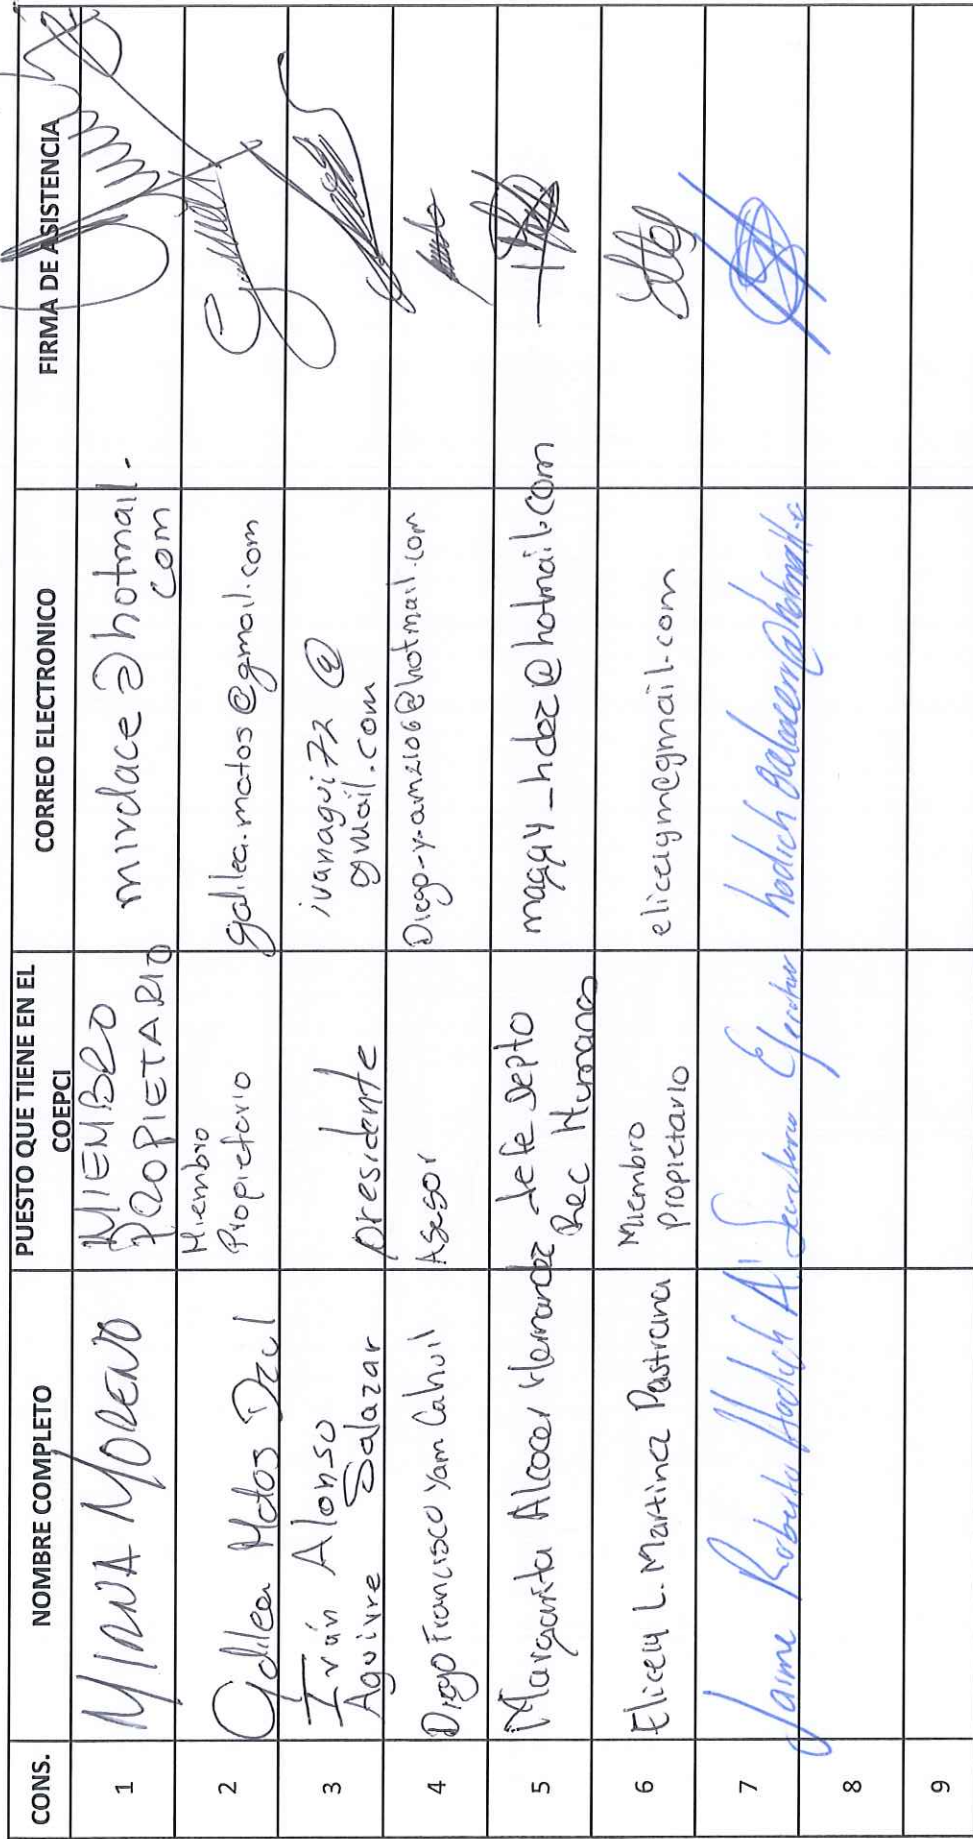 CONS. NOMBRE COMPLETO PUESTO QUE TIENE EN EL COEPCI CORREO ELECTRONICO FIRMA DE ASISTENCIA
1 MIRNA MORENO MIEMBRO PROPIETARIO mirdace@hotmail.com
2 Galilea Matos Dzul Miembro Propietario galilea.matos@gmail.com
3 Iván Alonso Aguirre Salazar presidente ivanagui72@gmail.com
4 Diego Francisco Yam Cahuil Asesor
5 Margarita Alcocer Hernandez Jefe Depto Rec Humanos maggy_hdez@hotmail.com
6 Elicely L. Martinez Pastrana Miembro propietario
7 Jaime Roberto Hadich A.
8
9